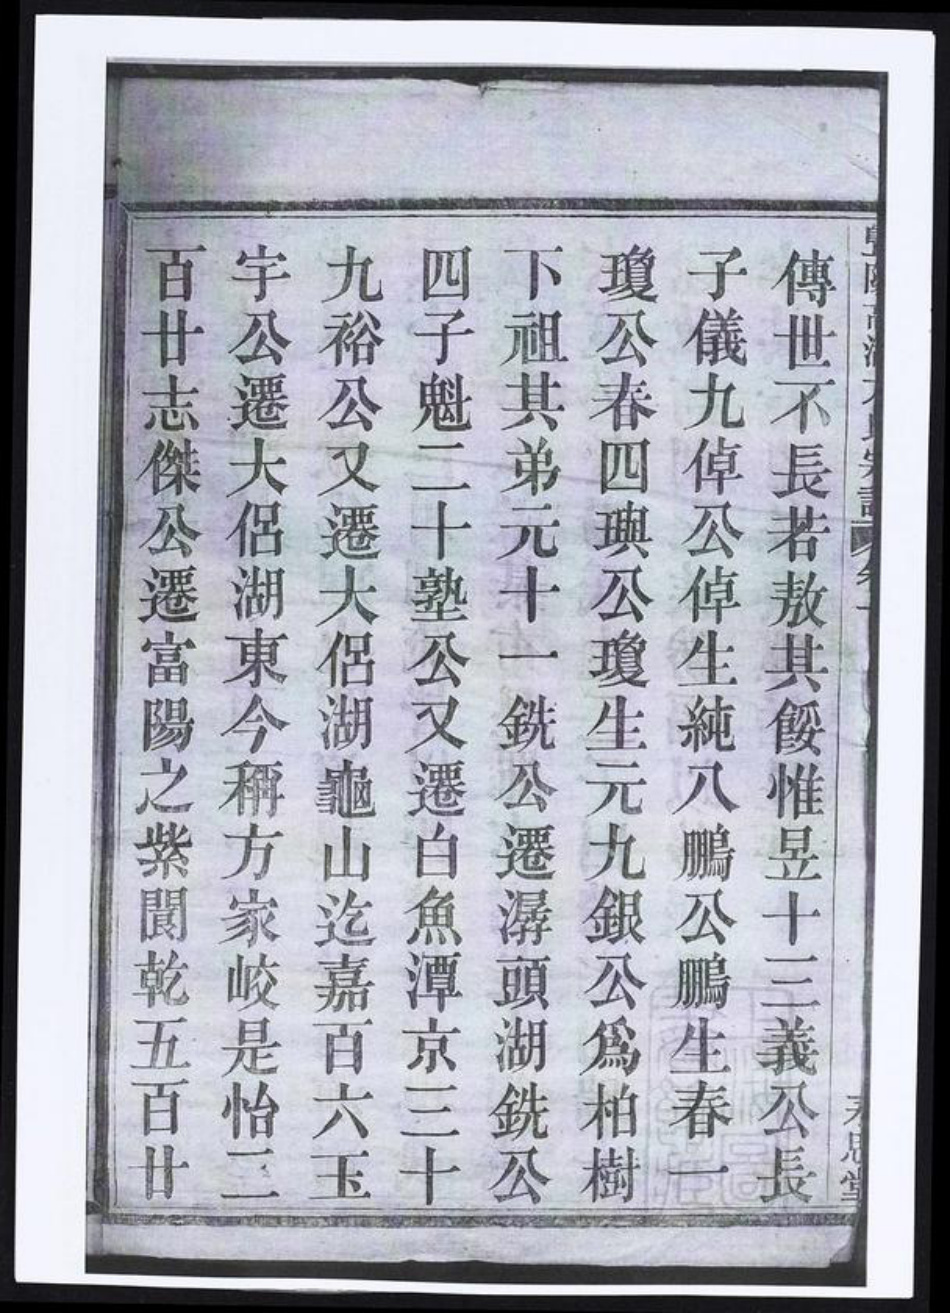 傳世不長若敖其餒惟昱十三義公長
子儀九倬公倬生純八鵬公鵬生春一
瓊公春四璵公瓊生元九銀公爲柏樹
下祖其弟元十一銑公遷潺頭湖銑公
四子魁二十塾公又遷白魚潭京三十
九裕公又遷大侶湖龜山迄嘉百六玉
宇公遷大侶湖東今稱方家峧是怡三
百廿志傑公遷富陽之紫閬乾五百廿